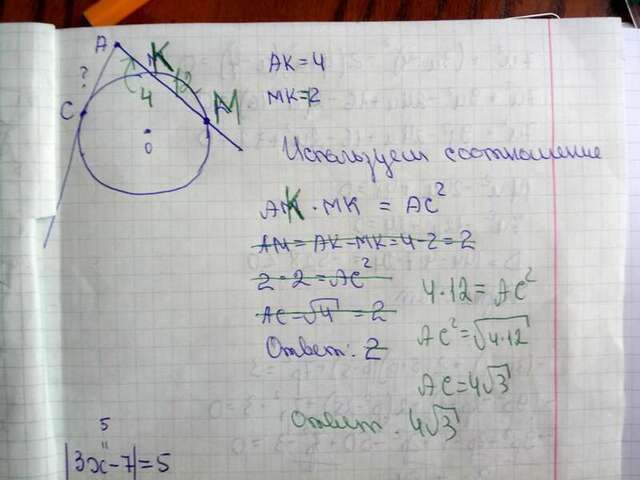 A
K
?
4
12
C
M
O
AK = 4
MK = 12
Используем соотношение
AK · MK = AC²
AM = AK - MK = 4 - 2 = 2
2 · 2 = AC²
AC = √4 = 2
Ответ: 2
4 · 12 = AC²
AC² = √4·12
AC = 4√3
Ответ: 4√3
5
"
|3x-7| = 5